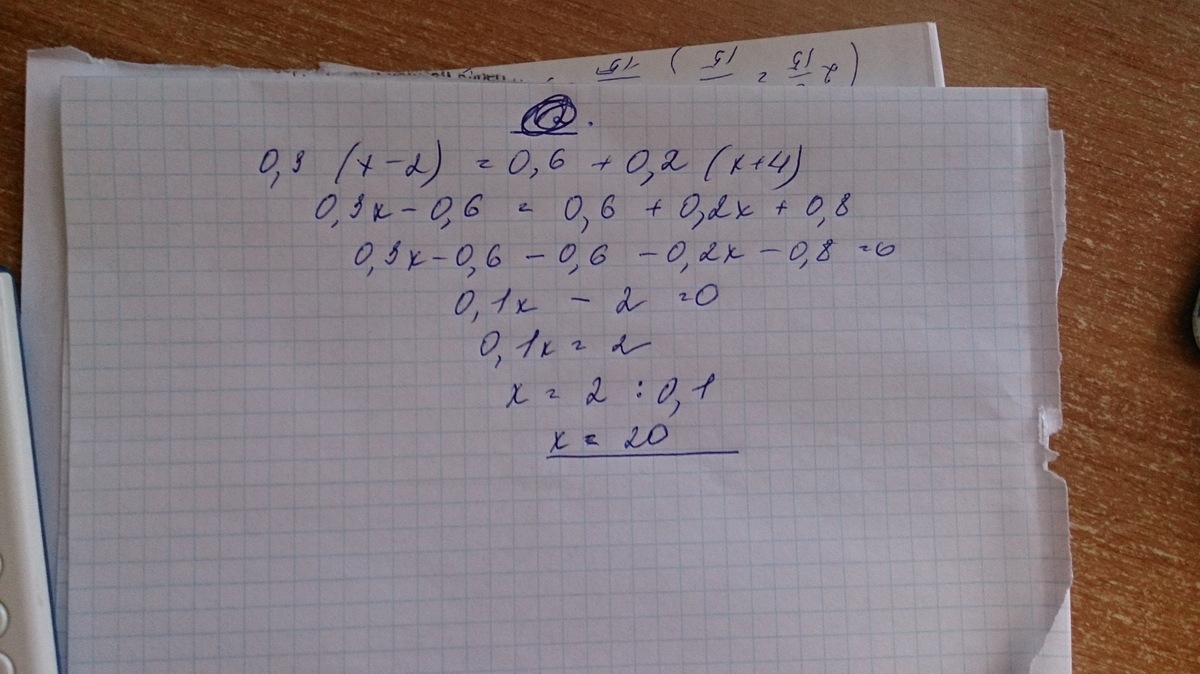 0,3 (x-2) = 0,6 + 0,2 (x+4)
0,3x - 0,6 = 0,6 + 0,2x + 0,8
0,3x - 0,6 - 0,6 - 0,2x - 0,8 = 0
0,1x - 2 = 0
0,1x = 2
x = 2 : 0,1
x = 20